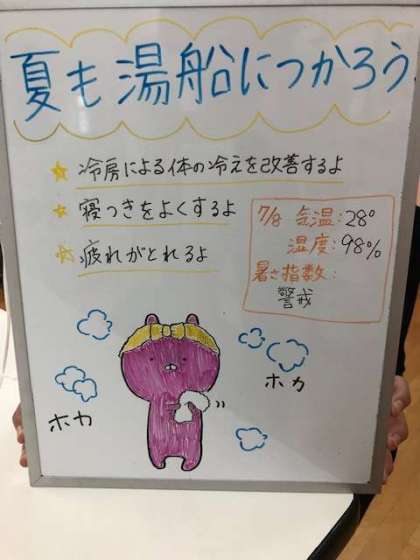 夏も湯船につかろう
冷房による体の冷えを改善するよ
寝つきをよくするよ
疲れがとれるよ
7/8 気温:28°
湿度:98%
暑さ指数:
警戒
ホカ
ホカ